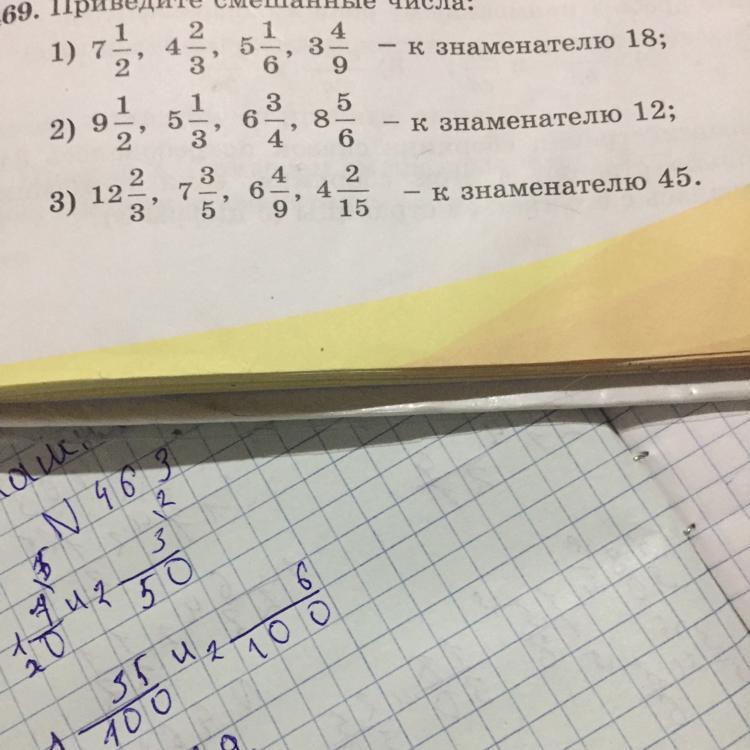 69. Приведите смешанные числа:
1) 7 1/2, 4 2/3, 5 1/6, 3 4/9 – к знаменателю 18;
2) 9 1/2, 5 1/3, 6 3/4, 8 5/6 – к знаменателю 12;
3) 12 2/3, 7 3/5, 6 4/9, 4 2/15 – к знаменателю 45.
N 463
и 2 3/50
35/100 и 2 6/100